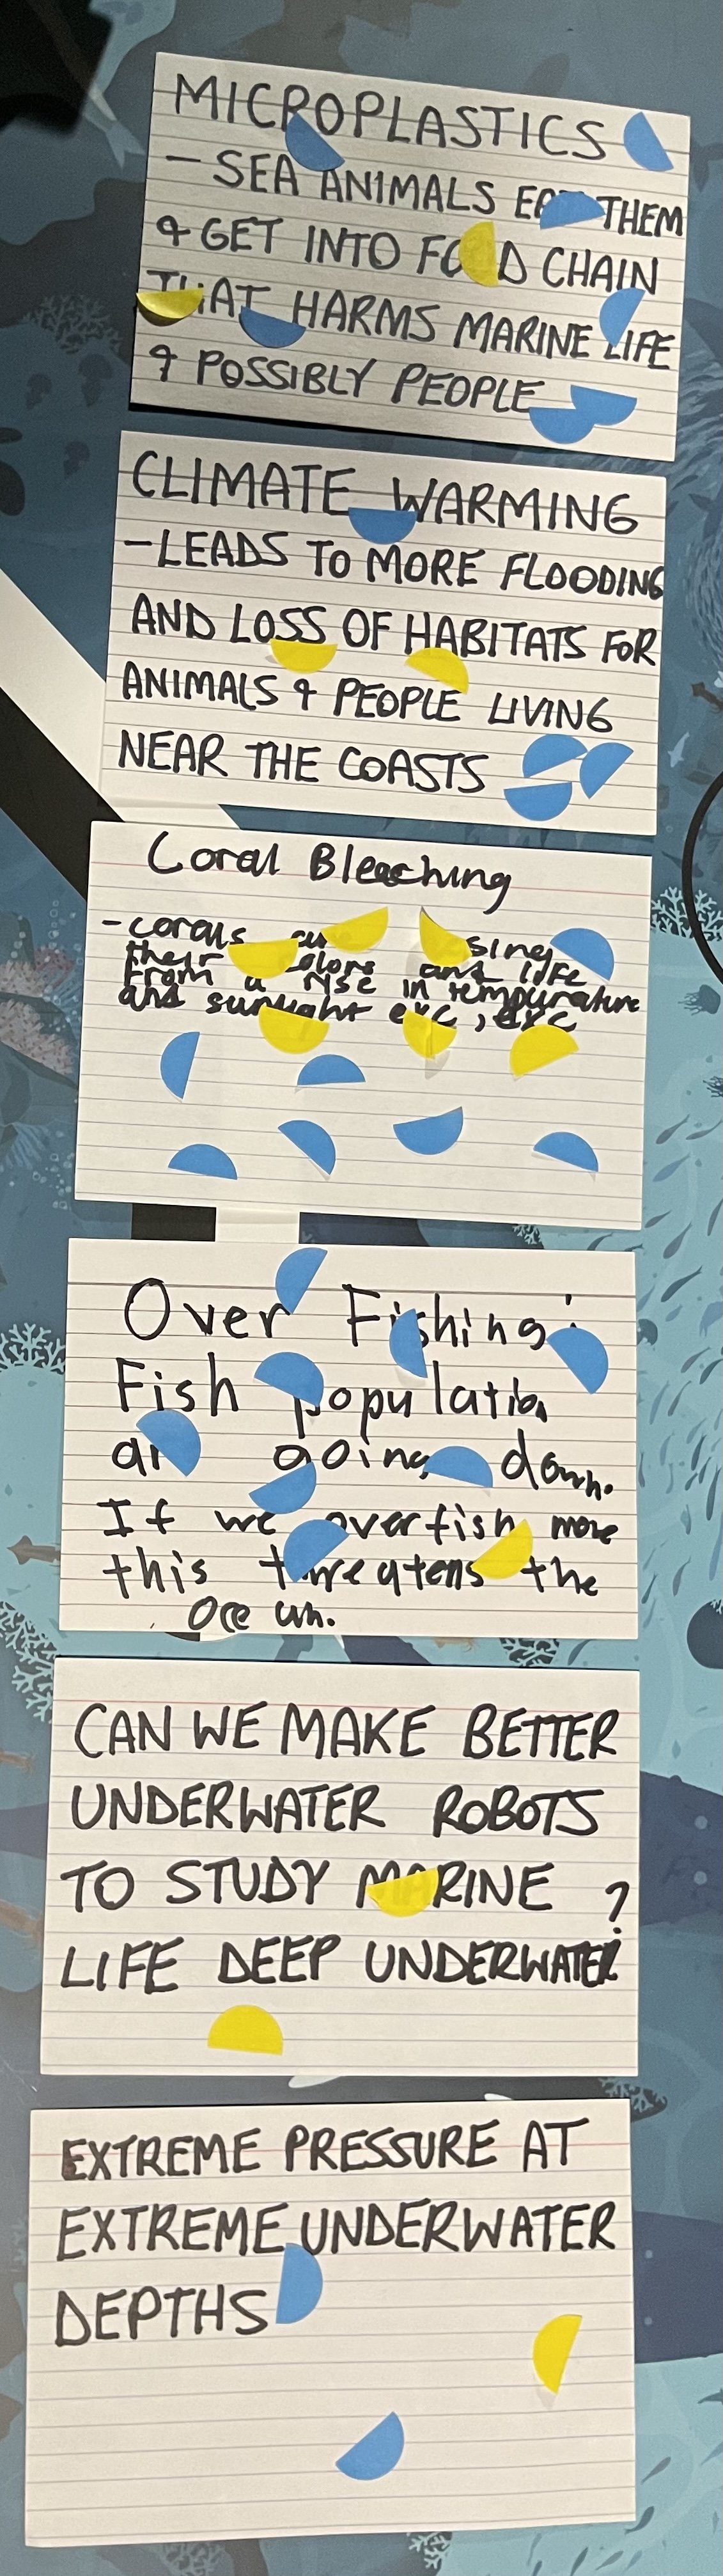 MICROPLASTICS
- SEA ANIMALS EAT THEM
& GET INTO FOOD CHAIN
THAT HARMS MARINE LIFE
& POSSIBLY PEOPLE
CLIMATE WARMING
- LEADS TO MORE FLOODING
AND LOSS OF HABITATS FOR
ANIMALS & PEOPLE LIVING
NEAR THE COASTS
Coral Bleaching
- corals
their colors and life
from a rise in tempurature
and sunlight exc, exc
Over Fishing:
Fish population
are going down.
If we overfish more
this threatens the
Ocean.
CAN WE MAKE BETTER
UNDERWATER ROBOTS
TO STUDY MARINE
LIFE DEEP UNDERWATER?
EXTREME PRESSURE AT
EXTREME UNDERWATER
DEPTHS